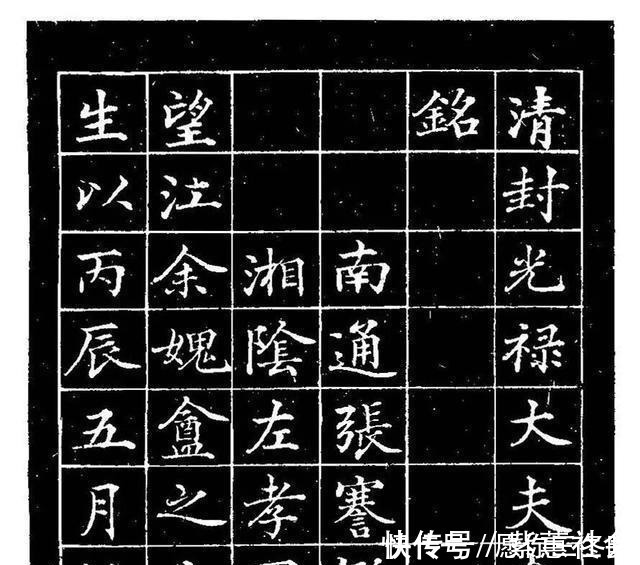 清封光禄大夫
銘
南通張謇
湘陰左孝
望江余媿盦之
生以丙辰五月
快传号 //